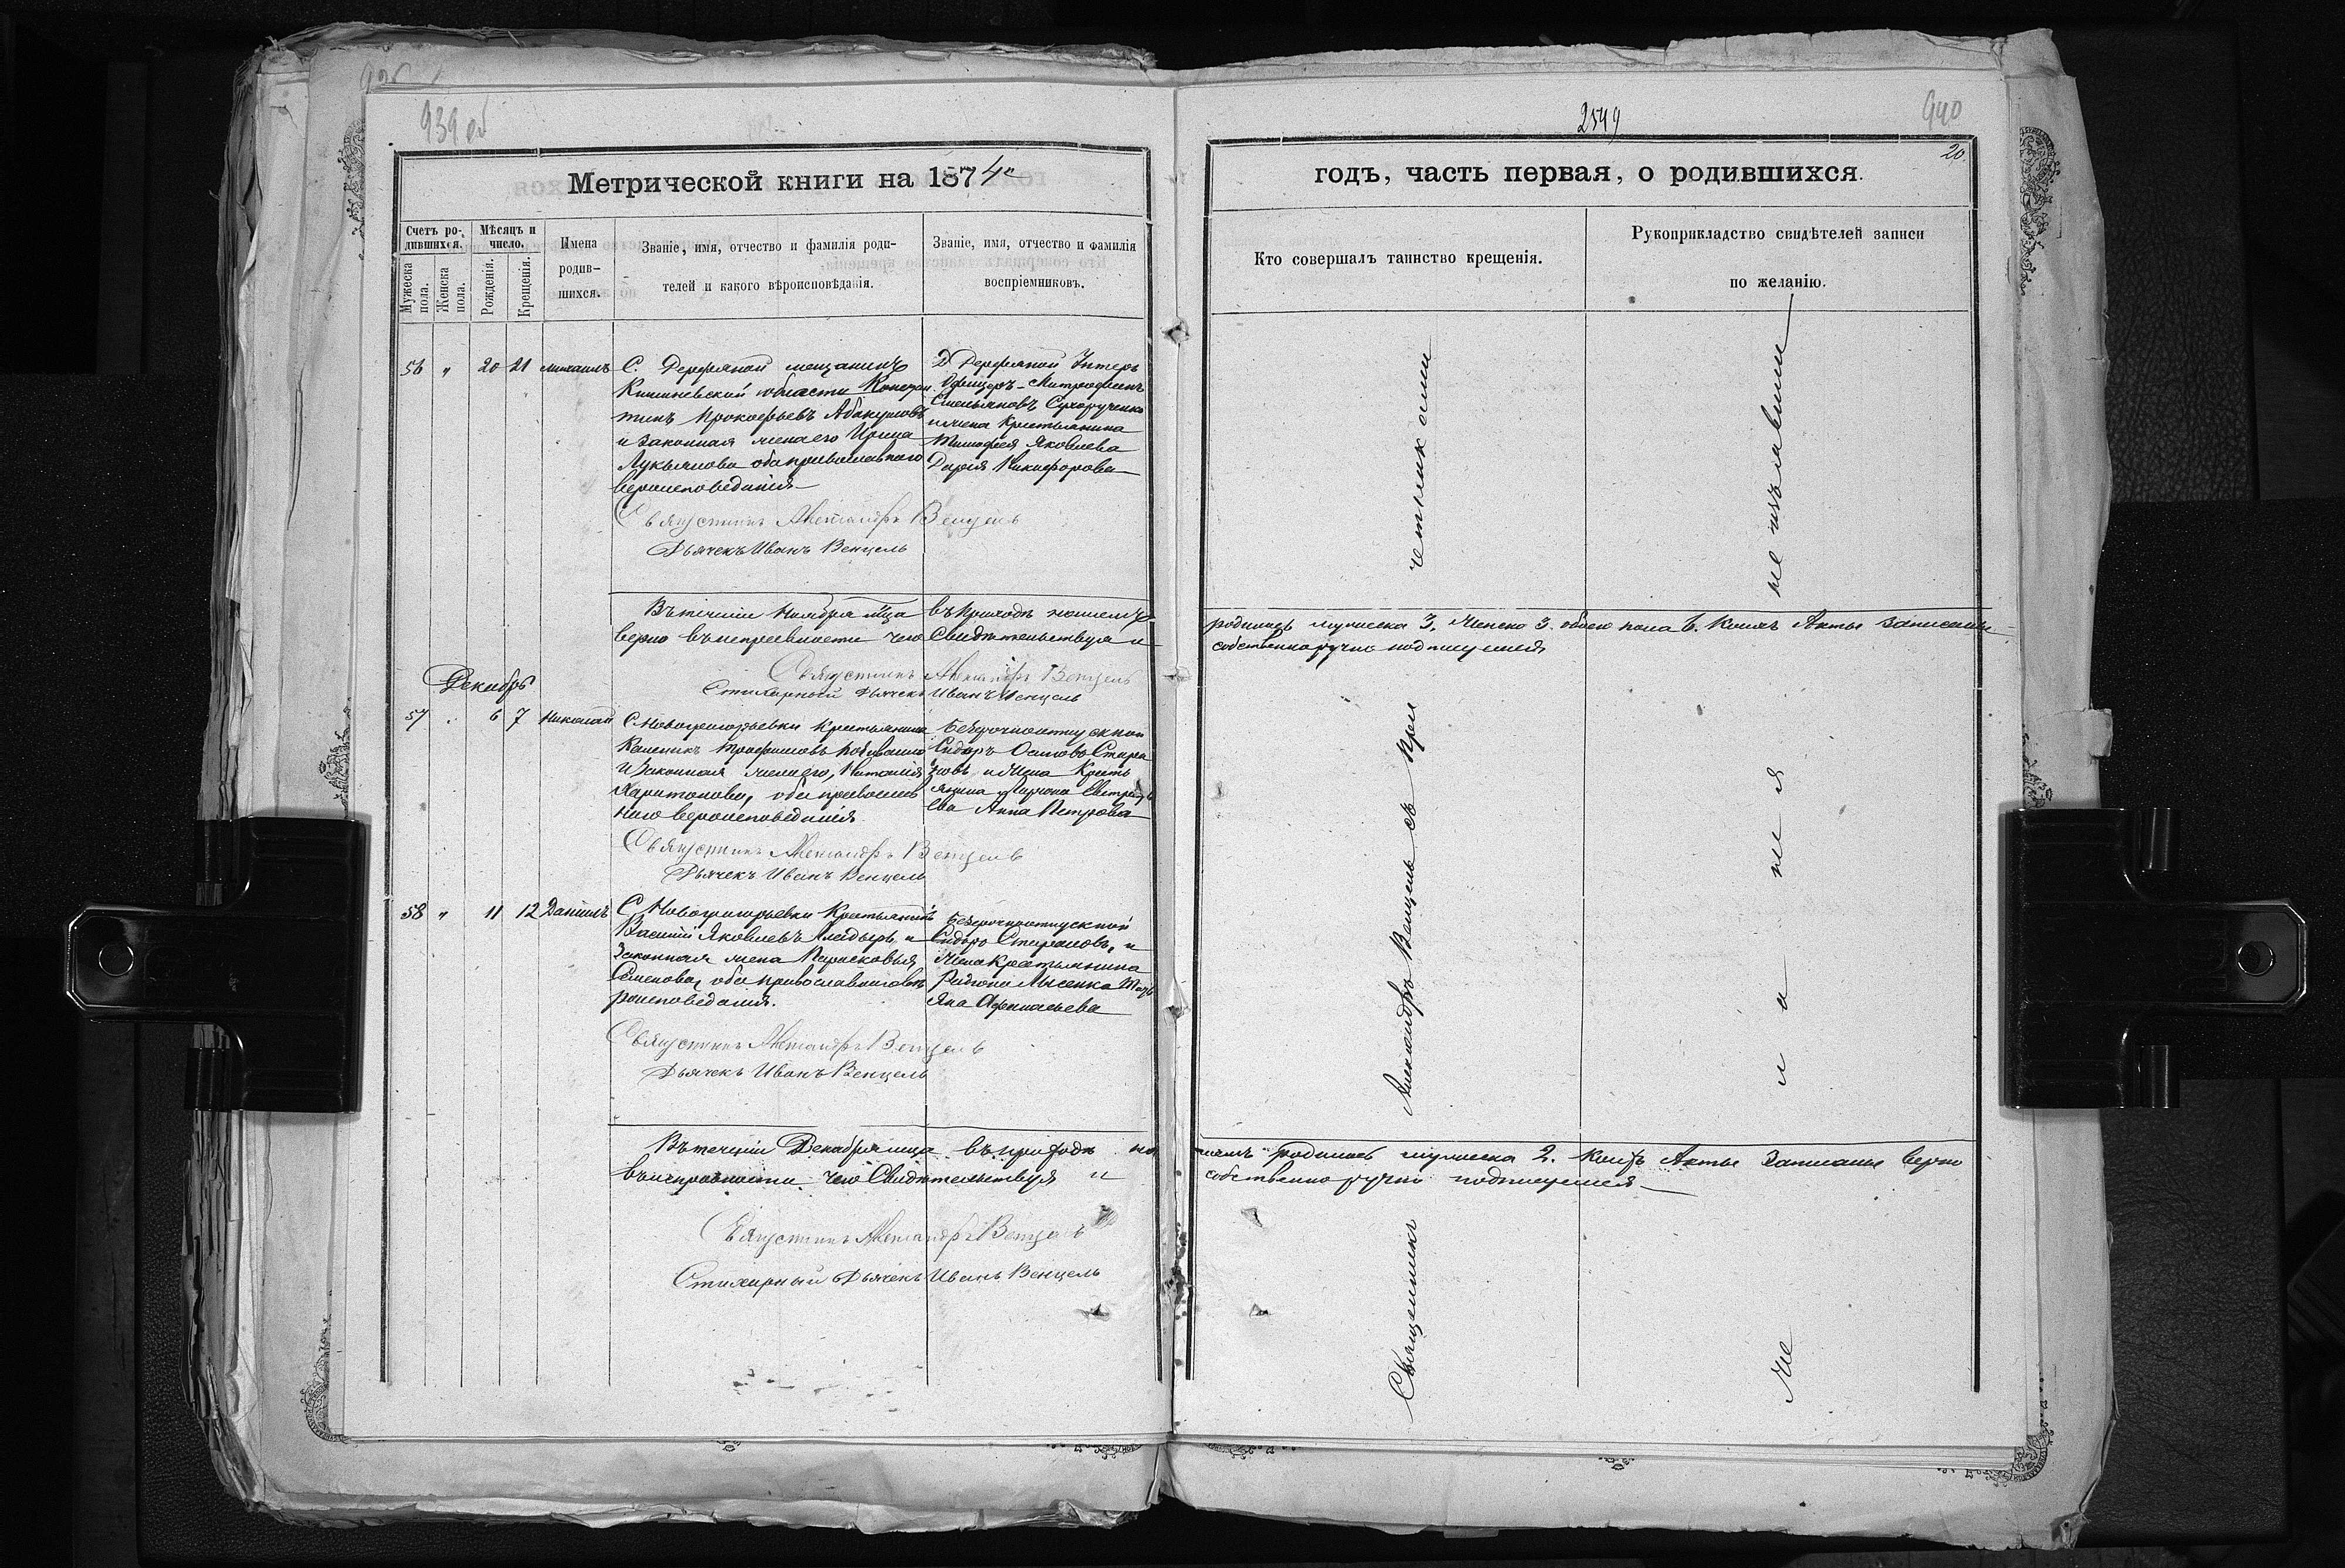 939 об
2549
940
20.
Метрической книги на 1874 г
годъ, часть первая, о родившихся.
Счетъ родившихся.
Мѣсяцъ и число.
Имена родившихся.
Званіе, имя, отчество и фамилія родителей и какого вѣроисповѣданія.
Званіе, имя, отчество и фамилія воспріемниковъ.
Мужеска пола.
Женска пола.
Рожденія.
Крещенія.
Кто совершалъ таинство крещенія.
Рукоприкладство свидѣтелей записи
по желанію.
56 " 20 21 Михаилъ
С. мещанинъ
Кишиневской области
Прокофьевъ Абакумовъ
и законная жена его
Лукьянова оба православнаго
вероисповеданія
Унтеръ
Офицеръ Митрофанъ
Емельяновъ Сухорученко
и жена Крестьянина
Тимофея Яковлева
Дарія Никифорова
Священникъ Александръ Венцель
Дьячекъ Иванъ Венцель
Въ теченіи Ноября м-ца въ приходѣ нашемъ
родилось мужеска 3, Женска 3. обоего пола 6. Коихъ Акты записаны
верно въ чего Свидѣтельствуя и
собственноручно подписуемся
Священникъ Александръ Венцель
Стихарный Дьячекъ Иванъ Венцель
Декабрь
57 " 6 7 Николай
С Новогригорьевки Крестьянинъ
Трофимовъ
и законная жена его, Наталія
Харитонова, оба православ
наго вероисповеданія
Безсрочноотпускной
Сидоръ
и Жена Кресть
янина
Анна Петрова
Священникъ Александръ Венцель
Дьячекъ Иванъ Венцель
58 " 11 12 Даніилъ
С Новогригорьевки Крестьянинъ
Василій Яковлевъ и
Законная жена Парасковья
Семенова, оба православного ве
роисповеданія.
Безсрочноотпускной
Сидоръ и
Жена Крестьянина
Лысенка Тать
яна Афанасьева
Священникъ Александръ Венцель
Дьячекъ Иванъ Венцель
Въ теченіи Декабря м-ца въ приходѣ на
шемъ родилось мужеска 2. Коихъ Акты Записаны верно
въ исправности чего Свидѣтельствуя и
собственноручно подписуемся
Священникъ Александръ Венцель
Стихарный Дьячекъ Иванъ Венцель
Священникъ Александръ Венцель съ При
четниками
Же ла ні я
не изъявили